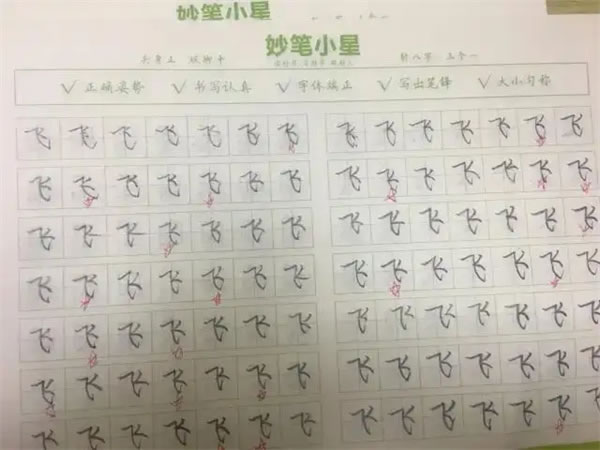 妙笔小星
妙笔小星
头身正 腿脚平
✓ 正确姿势 ✓ 书写认真 ✓ 字体端正 ✓ 写出笔锋 ✓ 大小匀称
飞 飞 飞 飞 飞 飞 飞 飞 飞 飞 飞 飞 飞 飞
飞 飞 飞 飞 飞 飞 飞 飞 飞 飞 飞 飞 飞 飞
飞 飞 飞 飞 飞 飞 飞 飞 飞 飞 飞 飞 飞 飞
飞 飞 飞 飞 飞 飞 飞 飞 飞 飞 飞 飞 飞 飞
飞 飞 飞 飞 飞 飞 飞 飞 飞 飞 飞 飞 飞 飞
飞 飞 飞 飞 飞 飞 飞 飞 飞 飞 飞 飞 飞 飞
飞 飞 飞 飞 飞 飞 飞 飞 飞 飞 飞 飞 飞 飞